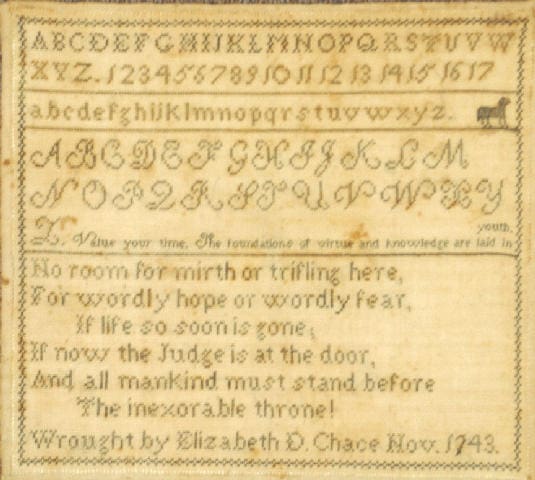 ABCDEFGHIJKLMNOPQRSTUVW
XYZ.1234567891011121314151617
abcdefghijklmnopqrstuvwxyz.
ABCDEFGHIJKLM
NOPQRSTUVWXY
youth.
Z. Value your time. The foundations of virtue and knowledge are laid in
No room for mirth or trifling here,
For wordly hope or wordly fear,
If life so soon is gone;
If now the Judge is at the door,
And all mankind must stand before
The inexorable throne!
Wrought by Elizabeth D. Chace Nov. 1743.